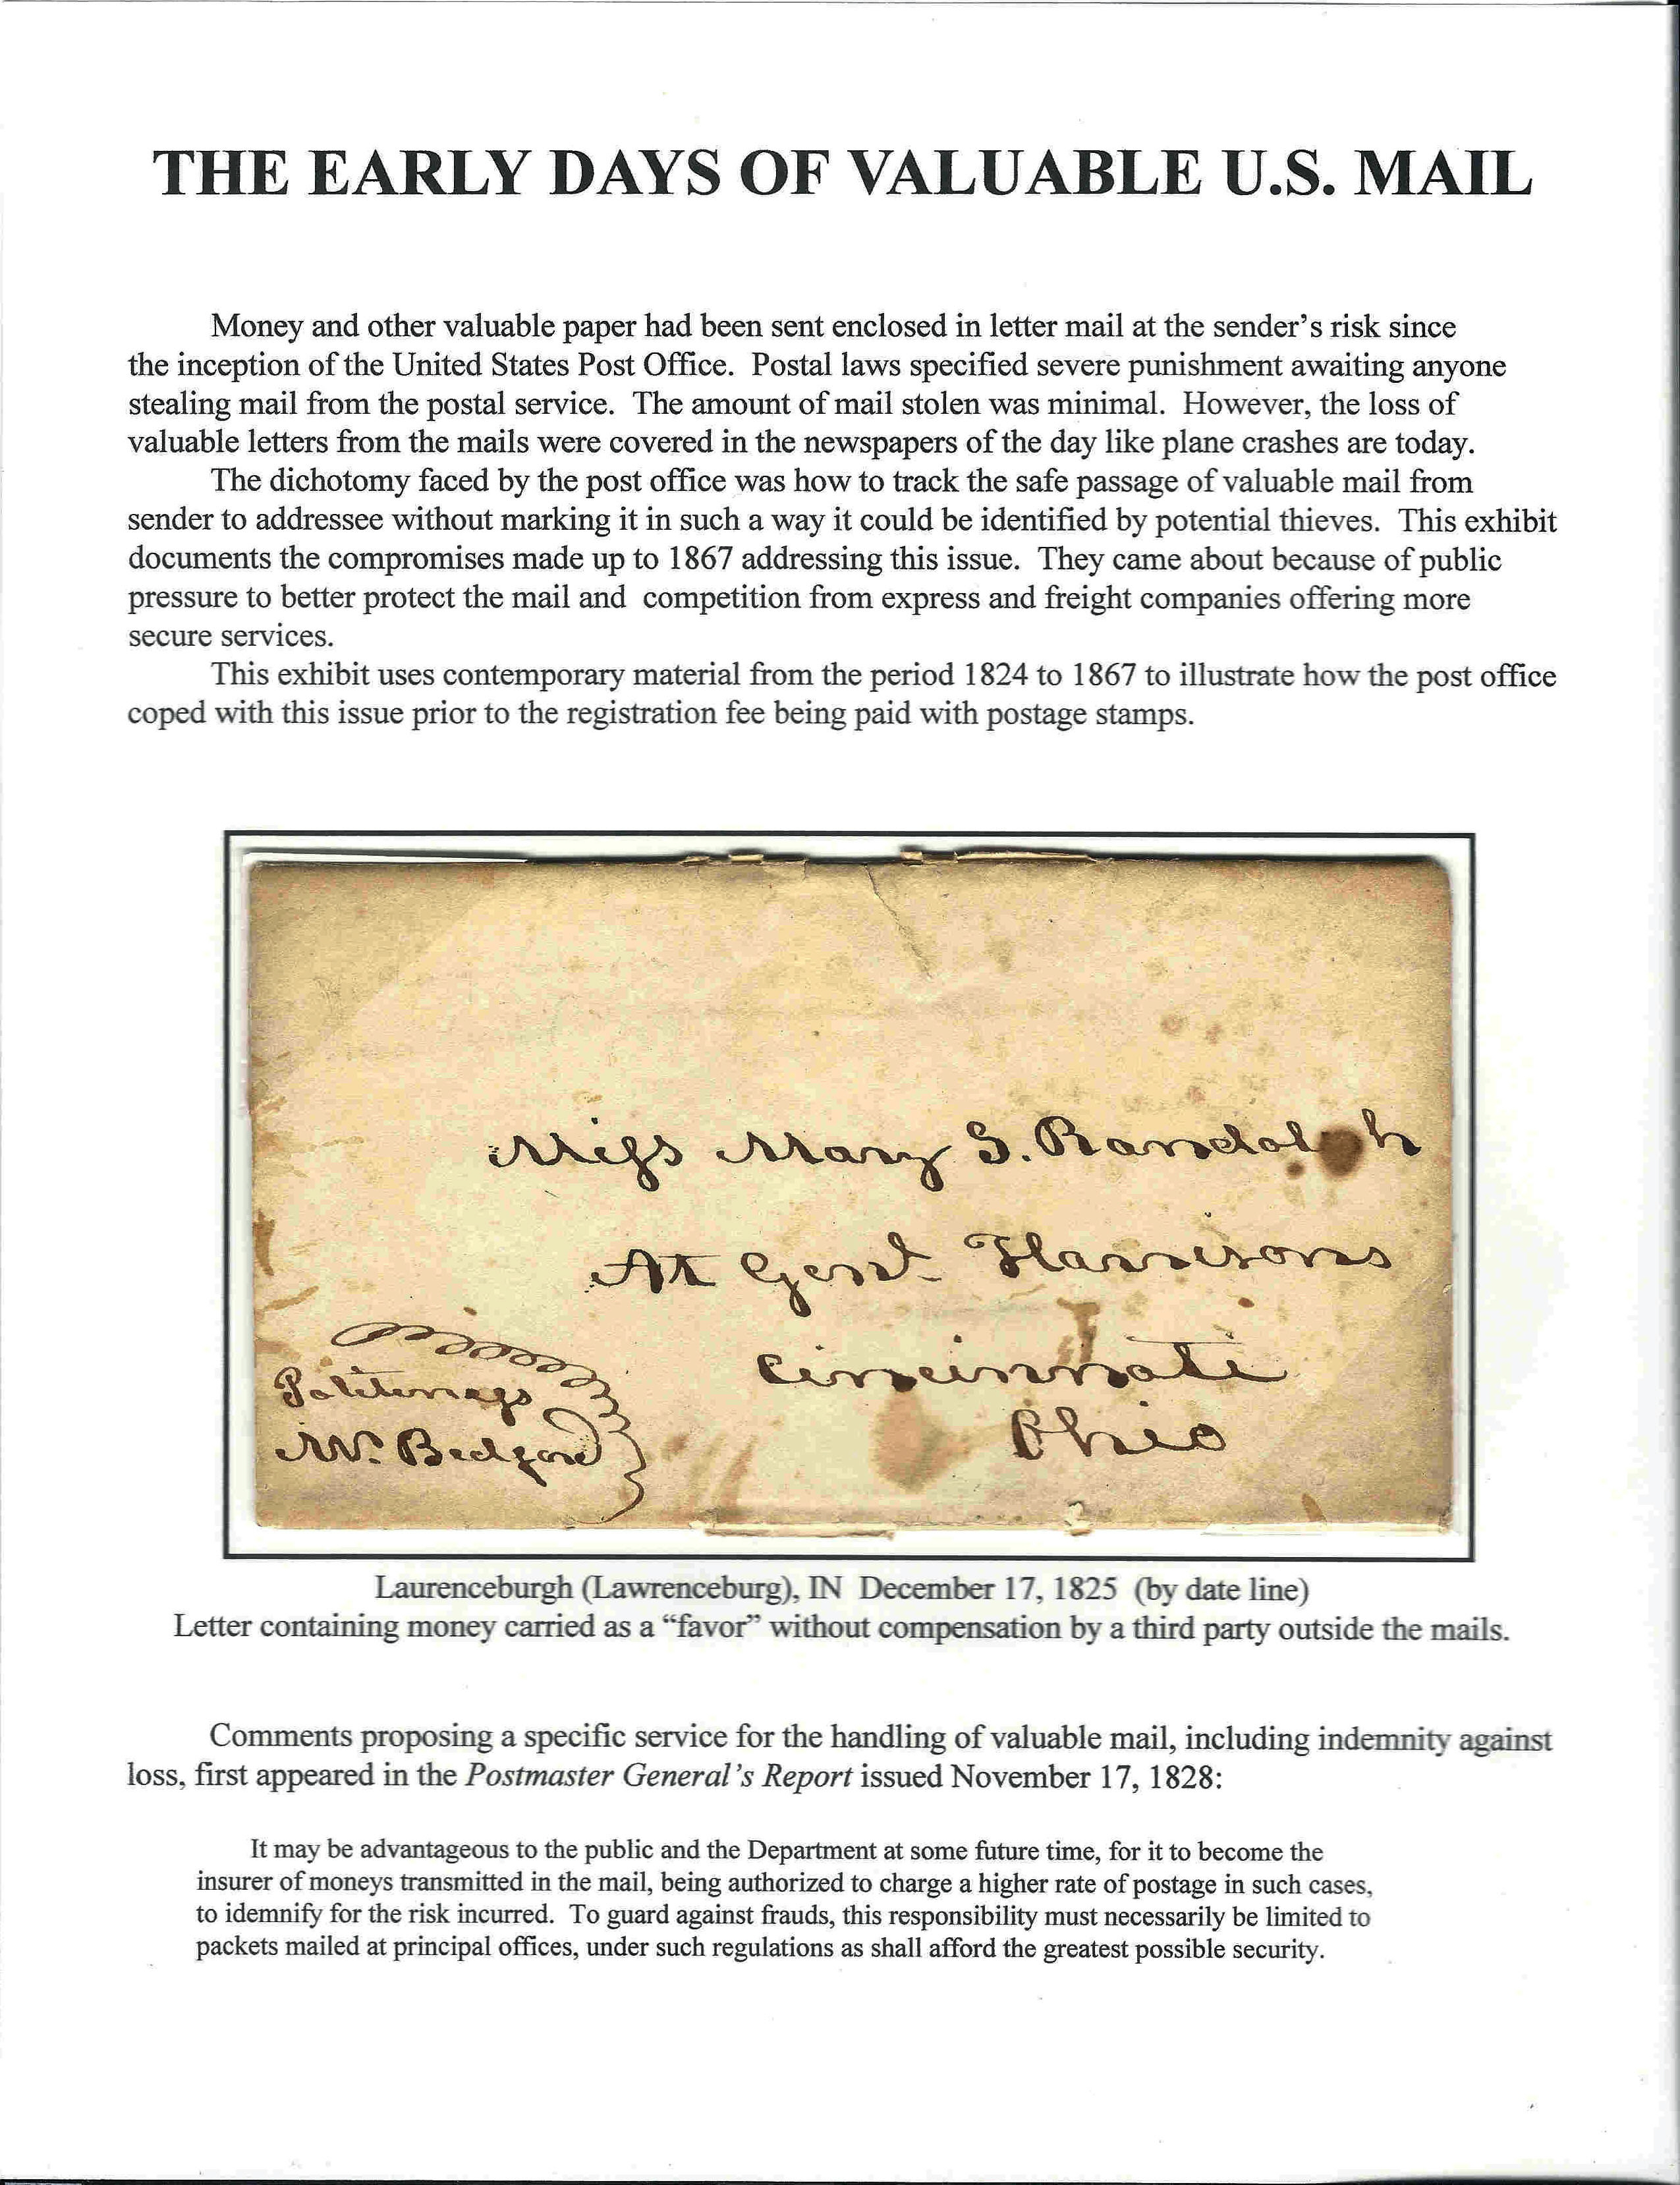 THE EARLY DAYS OF VALUABLE U.S. MAIL
Money and other valuable paper had been sent enclosed in letter mail at the sender's risk since
the inception of the United States Post Office.  Postal laws specified severe punishment awaiting anyone
stealing mail from the postal service.  The amount of mail stolen was minimal.  However, the loss of
valuable letters from the mails were covered in the newspapers of the day like plane crashes are today.
The dichotomy faced by the post office was how to track the safe passage of valuable mail from
sender to addressee without marking it in such a way it could be identified by potential thieves.  This exhibit
documents the compromises made up to 1867 addressing this issue.  They came about because of public
pressure to better protect the mail and  competition from express and freight companies offering more
secure services.
This exhibit uses contemporary material from the period 1824 to 1867 to illustrate how the post office
coped with this issue prior to the registration fee being paid with postage stamps.
Miſs Mary S. Randolph
At Genl. Harrisons
Cincinnati
Ohio
Politeneſs
Mr. Bedford
Laurenceburgh (Lawrenceburg), IN  December 17, 1825  (by date line)
Letter containing money carried as a “favor” without compensation by a third party outside the mails.
Comments proposing a specific service for the handling of valuable mail, including indemnity against
loss, first appeared in the Postmaster General's Report issued November 17, 1828:
It may be advantageous to the public and the Department at some future time, for it to become the
insurer of moneys transmitted in the mail, being authorized to charge a higher rate of postage in such cases,
to idemnify for the risk incurred.  To guard against frauds, this responsibility must necessarily be limited to
packets mailed at principal offices, under such regulations as shall afford the greatest possible security.